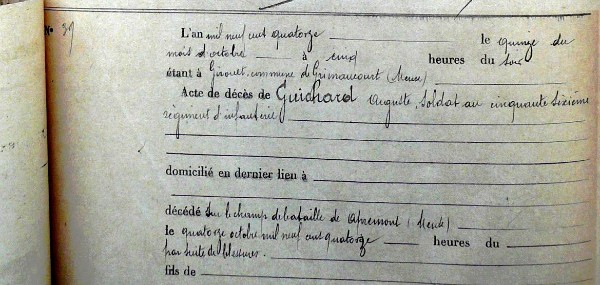 N° 39
L'an mil neuf cent quatorze le quinze du
mois d'octobre à cinq heures du soir
étant à Girouet, commune de Grimaucourt (Meuse)
Acte de décès de Guichard Auguste, Soldat au cinquante sixième
régiment d'infanterie
domicilié en dernier lieu à
décédé sur le champ de bataille de Apremont (Meuse)
le quatorze octobre mil neuf cent quatorze heures du
par suite de blessures.
fils de